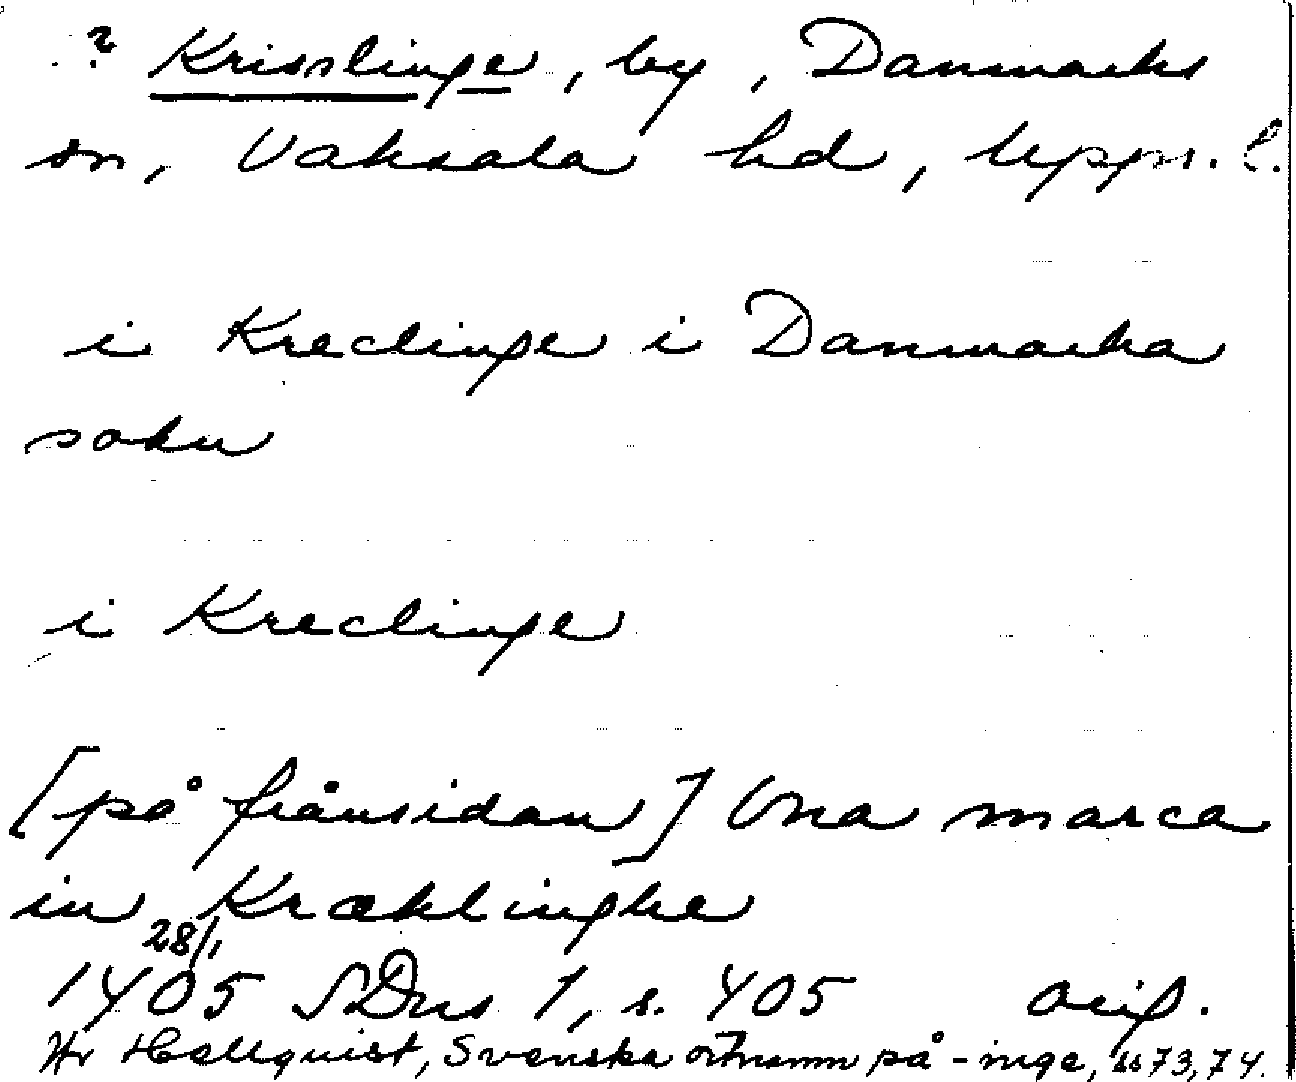 ? Krisslinge, by, Danmarks
sn, Vaksala hd, Upps. l.
i Kreclinge i Danmarka
sokn
i Kreclinge
[på frånsidan] Una marca
in Kræklinghe
28/1
1405 SDns 1, s. 405 orig.
Jfr Hellquist, Svenska ortnamn på -inge, ss 73, 74.